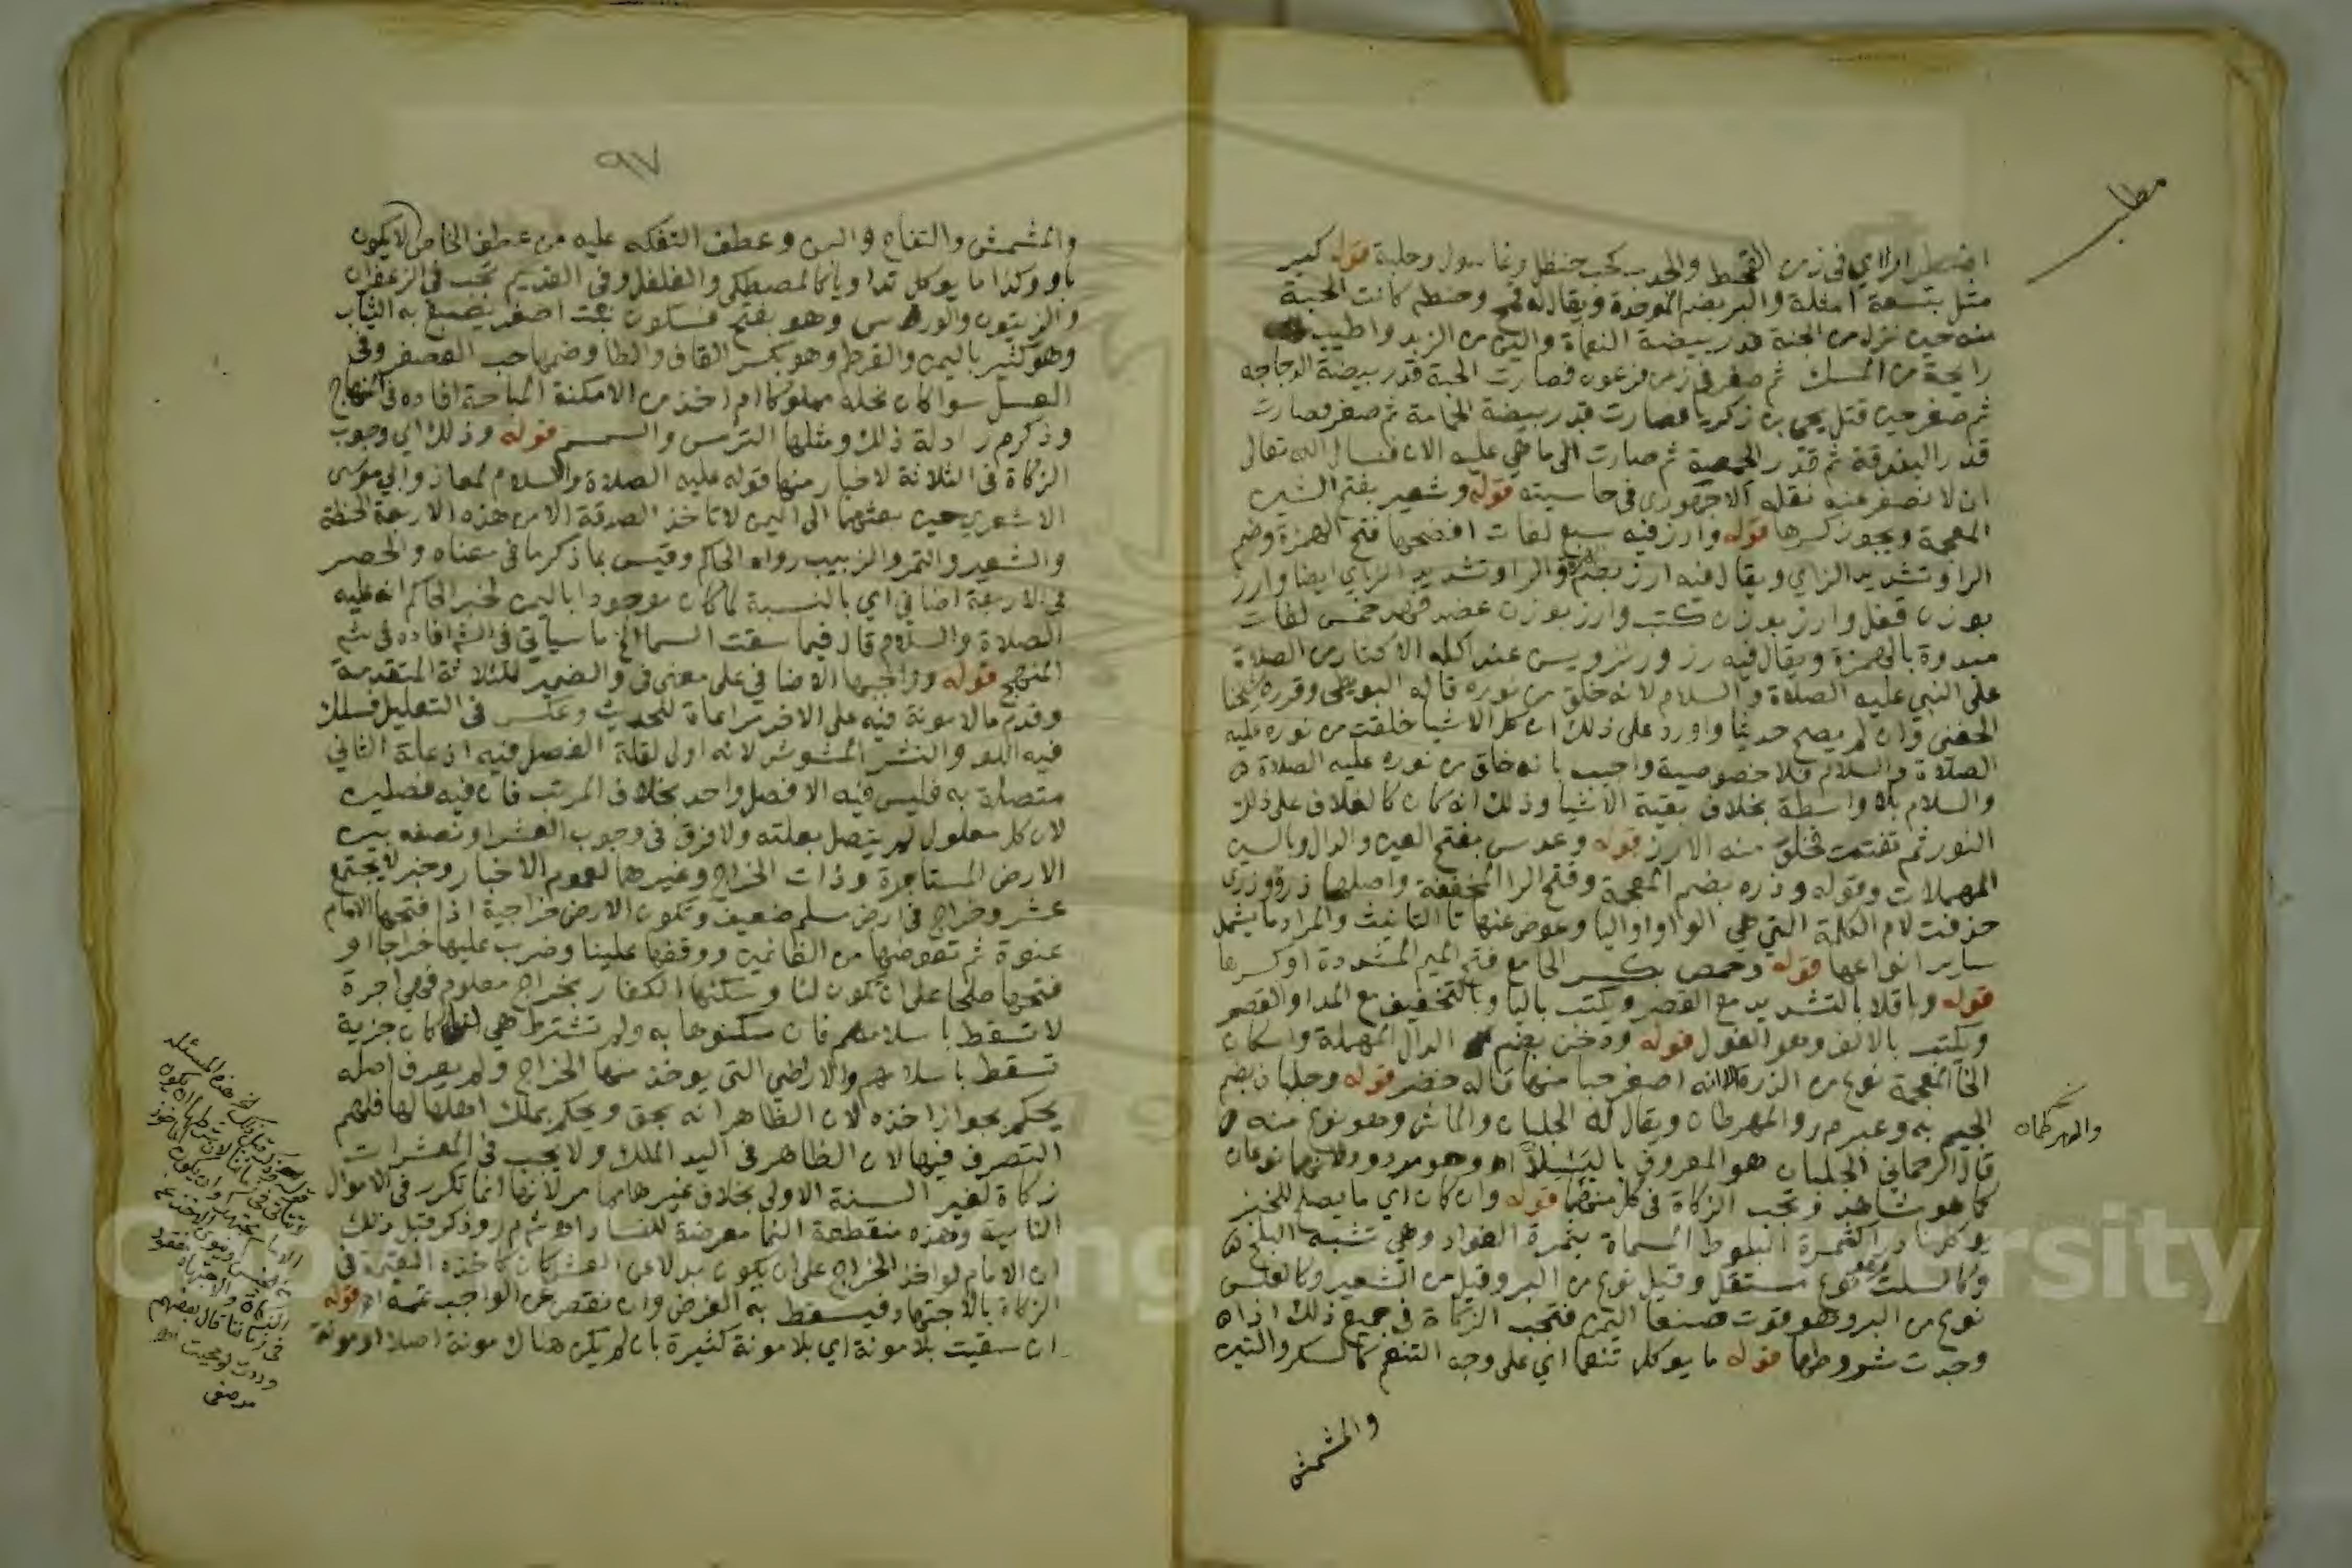 مطلب
اضطرارا اي في زمن القحط والجدب كحب حنظل وغاسول وحلبة قوله كبر
مثل بتسعة امثلة والبر بضم الموحدة ويقال له قمح وحنطه كانت الحبة
منه حين نزل من الجنة قدر بيضة النعامة والين من الزبد واطيب
رايحة من المسك ثم صغر في زمن فرعون فصارت الحبة قدر بيضة الدجاجه
ثم صغر حين قتل يحيى بن زكريا فصارت قدر بيضة الحمامة ثم صغر فصارت
قدر البندقة ثم قدر الحمصة ثم صارت الى ما هي عليه الان فنسال الله تعالى
ان لا تصغر عنه نقله الاجهوري في حاسيته قوله وشعير بفتح الشين
المعجمة ويجوز كسرها قوله وارز فيه سبع لغات افصحها فتح الهمزة وضم
الرا وتشديد الزاي ويقال فيه ارز بضم الهمزة والرا وتشديد الزاي ايضا وارز
بوزن قفل وارز بوزن كتب وارز بوزن عضد فهذه خمس لغات
مبدوة بالهمزة ويقال فيه رز ورنز ويسن عند اكله الاكثار من الصلاة
على النبي عليه الصلاة والسلام لانه خلق من نوره قاله البويطى وقرره شيخنا
الحفنى وان لم يصح حديثا واورد على ذلك ان كل الاشيا خلقت من نوره عليه
الصلاة والسلام فلا خصوصية واجيب بانه خلق من نوره عليه الصلاة
والسلام بلا واسطة بخلاف بقية الاشيا وذلك انه كان كالغلاف على ذلك
النور ثم تفتت فخلق منه الارز قوله وعدس بفتح العين والدال وبالسين
المهملات وقوله وذره بضم المعجمة وفتح الرا المخففة واصلها ذرو وذرى
حذفت لام الكلمة التي هي الواو او اليا وعوض عنها تا التانيث والمراد ما يشمل
ساير انواعها قوله وحمص بكسر الحا مع فتح الميم المشددة او كسرها
قوله وباقلا بالتشديد مع القصر ويكتب باليا وبالتخفيف مع المد او القصر
ويكتب بالالف وهو الفول قوله ودخن بضم الدال المهملة واسكان
الخا المعجمة نوع من الذرة الا انه اصغر حبا منها قاله خضر قوله وجلبان بضم
الجيم به وعبر م ر والهرطمان ويقال له الجلبان والماش وهو نوع منه
والهرطمان
قال الرحماني الجلبان هو المعروف بالبسلا اه وهو مردود لانهما نوعان
كما هو شاهد وتجب الزكاة في كل منهما قوله وان كان اي ما يصلح للخبز
يوكل نادرا كثمرة البلوط المسماة بثمرة الفواد وهي تشبه البلح
وكالسلت وهو نوع مستقل وقيل نوع من البر وقيل من الشعير وكالعلس
نوع من البر وهو قوت صنعا اليمن فتجب الزكاة في جميع ذلك اذا
وجدت شروطها قوله ما يوكل تنعما اي على وجه التنعم كالسكر والتين
والمشمش
٩٧
والمشمش والتفاح والبن وعطف التفكه عليه من عطف الخاص لا يكون
باو وكذا ما يوكل تداويا كالمصطكى والفلفل وفي القديم تجب في الزعفران
والزيتون والورس وهو بفتح فسكون نبت اصفر يصبغ به الثياب
وهو كثير باليمن والقرطم وهو بكسر القاف والطا وضمها حب العصفر وفي
العسل سوا كان نحله مملوكا ام اخذ من الامكنة المباحة افاده في المنهاج
وذكر م ر ادلة ذلك ومثلها الترمس والسمسم قوله وذلك اي وجوب
الزكاة في الثلاثة لاخبار منها قوله عليه الصلاة والسلام لمعاذ وابي موسى
الاشعري حين بعثهما الى اليمن لا تاخذ الصدقة الا من هذه الاربعة الحنطة
والشعير والتمر والزبيب رواه الحاكم وقيس بما ذكر ما في معناه والحصر
في الاربعة اضافي اي بالنسبة لما كان موجودا باليمن لخبر الحاكم انه عليه
الصلاة والسلام قال فيما سقت السما الخ ما سياتي في الش افاده في شم
المنهج قوله وواجبها الاضافي على معنى في والضمير للثلاثة المتقدمة
وقدم ما لا مونة فيه على الاخر مراعاة للحديث وعكس في التعليل فسلك
فيه اللف والنشر المشوش لانه اولى لقلة الفصل فيه اذ علة الثاني
متصلة به فليس فيه الا فصل واحد بخلاف المرتب فان فيه فصلين
لان كل معلول لم يتصل بعلته ولا فرق في وجوب العشر او نصفه بين
الارض المستاجرة وذات الخراج وغيرهما لعموم الاخبار وخبر لا يجتمع
عشر وخراج في ارض مسلم ضعيف وتكون الارض خراجية اذا فتحها الامام
عنوة ثم تعوضها من الغانمين ووقفها علينا وضرب عليها خراجا او
فتحها صلحا على ان تكون لنا وسكنها الكفار بخراج معلوم فهي اجرة
لا تسقط باسلامهم فان سكنوها به ولم تشترط هي لنا كان جزية
تسقط باسلامهم والاراضي التي يوخذ منها الخراج ولم يعرف اصله
يحكم بجواز اخذه لان الظاهر انه بحق ويحكم بملك اهلها لها فلهم
التصرف فيها لان الظاهر في اليد الملك ولا يجب في المعشرات
زكاة لغير السنة الاولى بخلاف غيرها مما مر لانها انما تكرر في الاموال
النامية وهذه منقطعة النما معرضة للفساد اه ش م ر وذكر قبل ذلك
ان الامام لو اخذ الخراج على ان يكون بدلا عن العشر كان كاخذه القيمة في
الزكاة بالاجتهاد فيسقط به الفرض وان نقص عن الواجب تممه اه قوله
ان سقيت بلا مونة اي بلا مونة كثيرة بان لم يكن هناك مونة اصلا او مونة